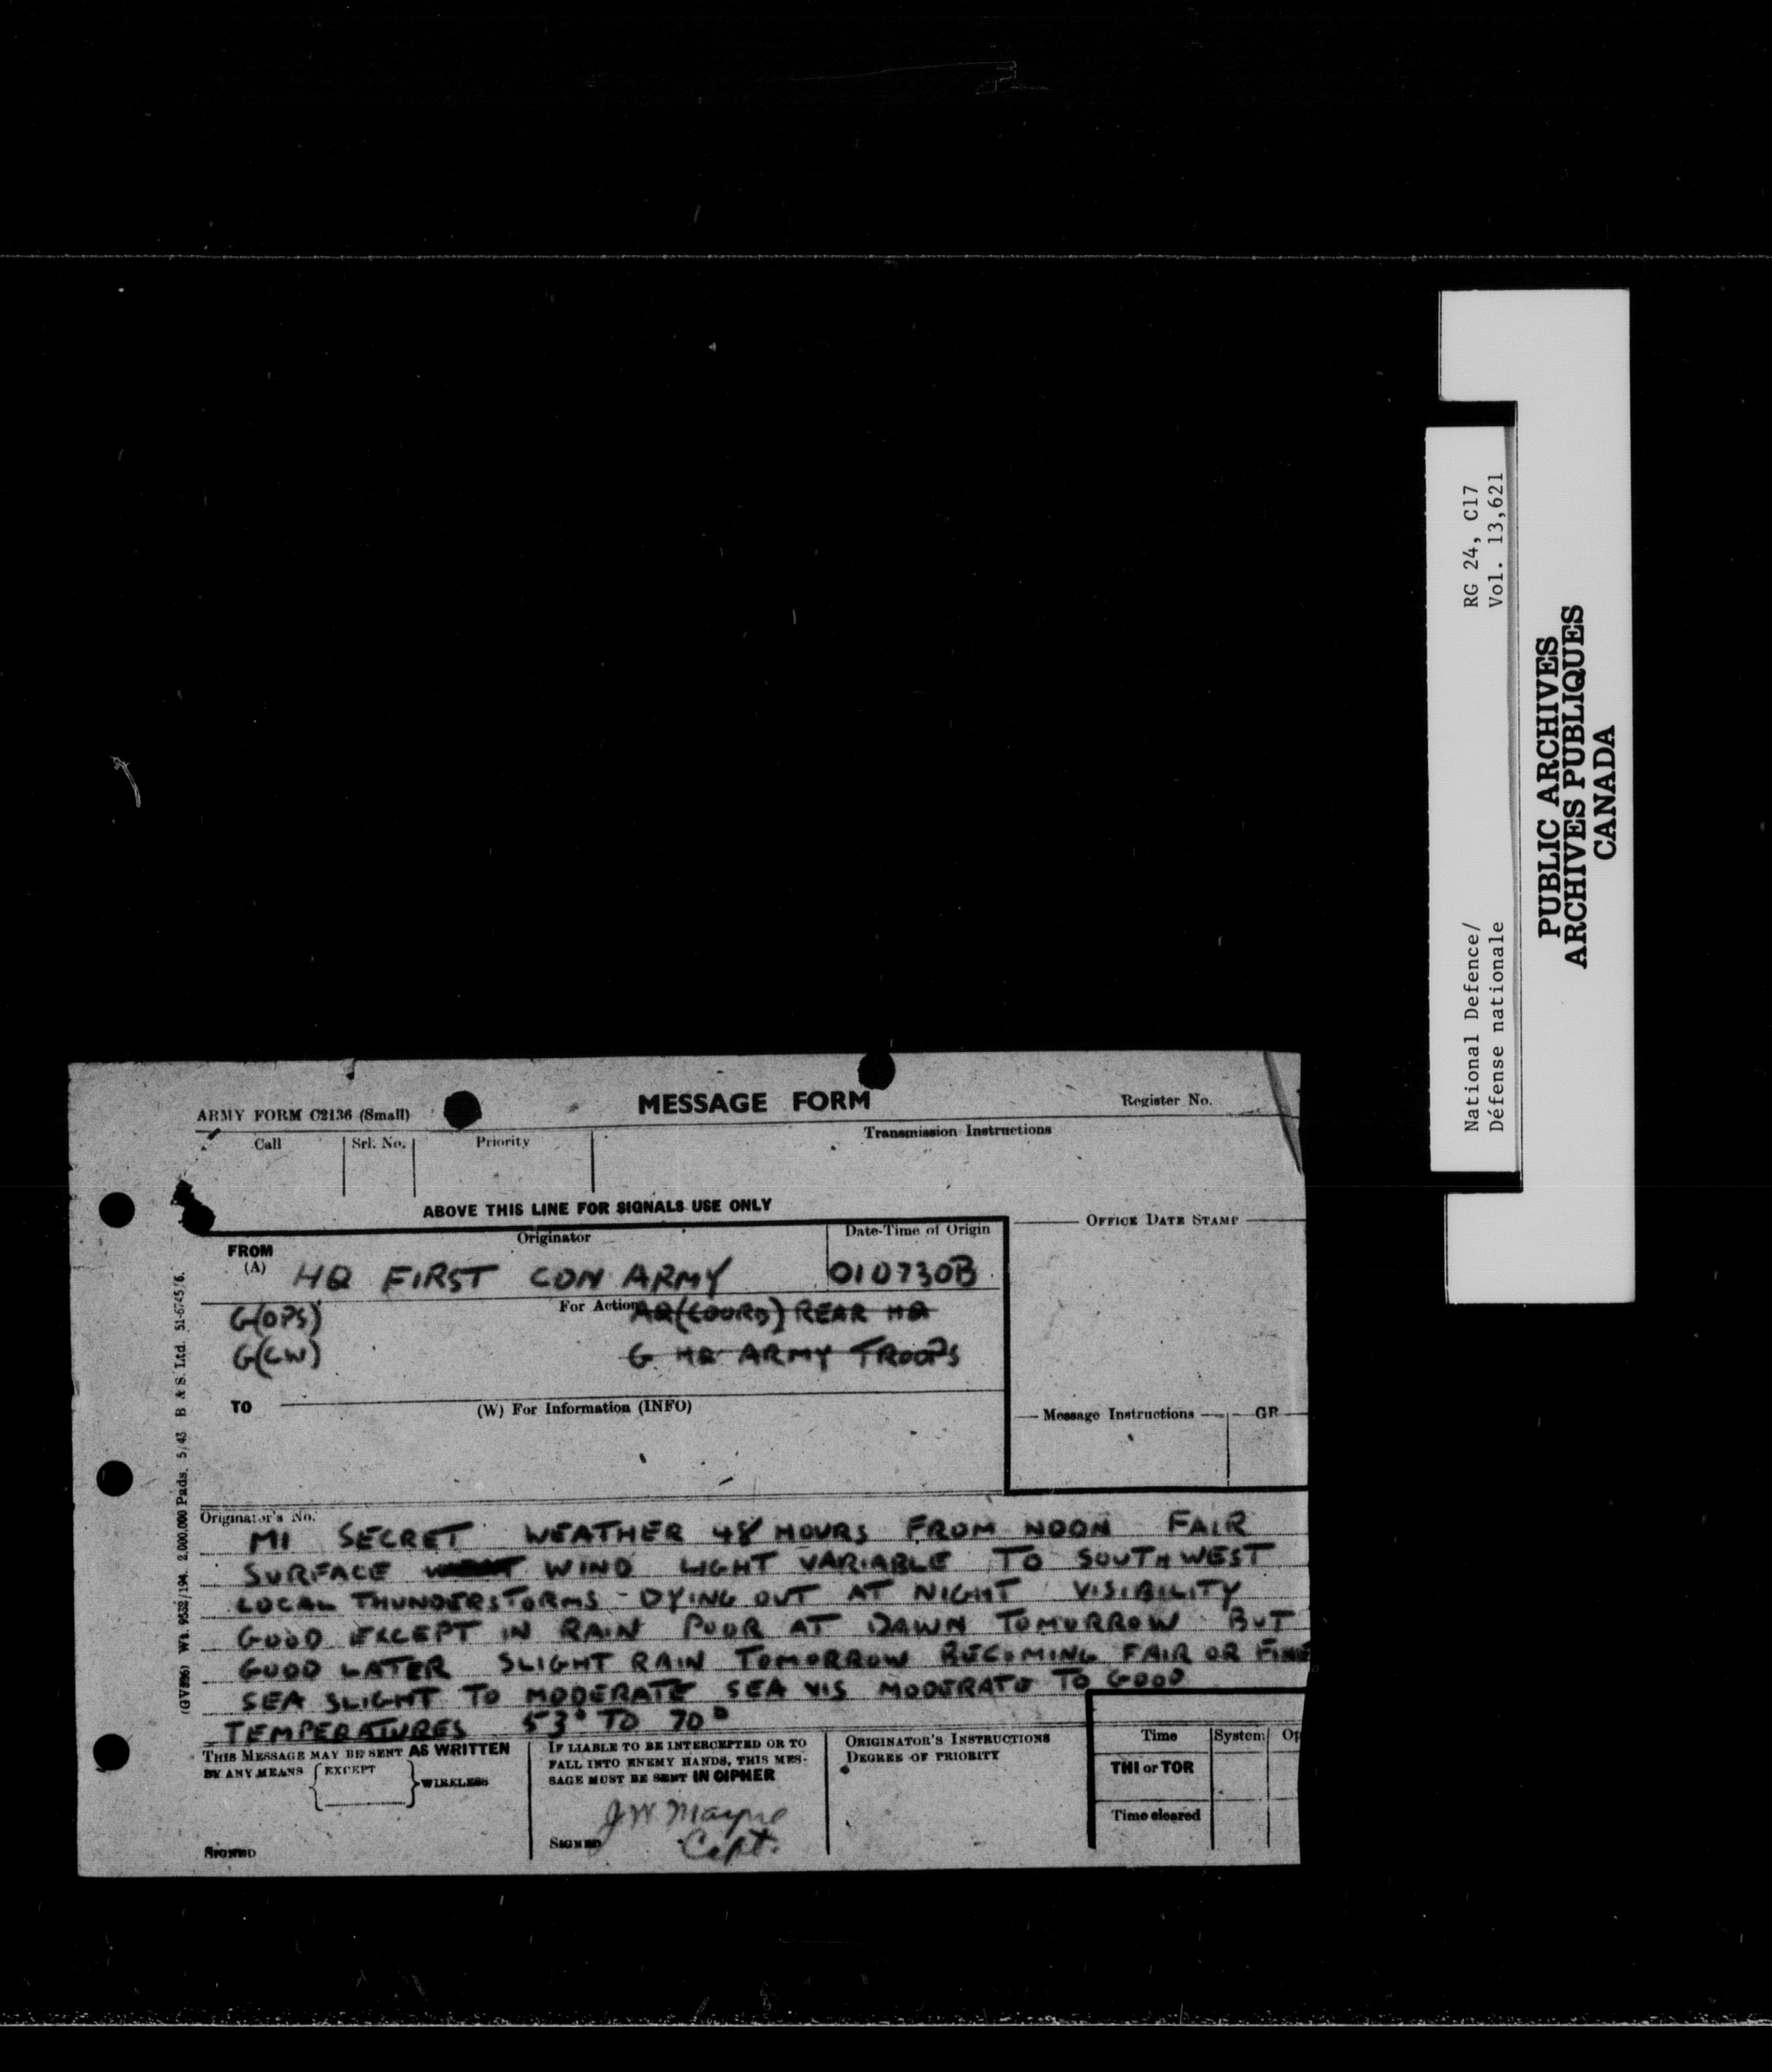 ARMY FORM C2136 (Small)
MESSAGE FORM
Register No.
Call
Srl. No.
Priority
Transmission Instructions
ABOVE THIS LINE FOR SIGNALS USE ONLY
FROM
(A)
Originator
Date-Time of Origin
OFFICE DATE STAMP
HQ FIRST CDN ARMY
010730B
For Action
G(OPS)
AQ(COORD) REAR HQ
G(CW)
G HQ ARMY TROOPS
TO
(W) For Information (INFO)
Message Instructions
GR
Originator's No.
M1 SECRET WEATHER 48 HOURS FROM NOON FAIR
SURFACE WIND LIGHT VARIABLE TO SOUTHWEST
LOCAL THUNDERSTORMS - DYING OUT AT NIGHT VISIBILITY
GOOD EXCEPT IN RAIN POOR AT DAWN TOMORROW BUT
GOOD LATER SLIGHT RAIN TOMORROW BECOMING FAIR OR FINE
SEA SLIGHT TO MODERATE SEA VIS MODERATE TO GOOD
TEMPERATURES 53° TO 70°
THIS MESSAGE MAY BE SENT AS WRITTEN
BY ANY MEANS
EXCEPT
WIRELESS
SIGNED
IF LIABLE TO BE INTERCEPTED OR TO
FALL INTO ENEMY HANDS, THIS MES-
SAGE MUST BE SENT IN CIPHER
J W Mayne
SIGNED
Capt.
ORIGINATOR'S INSTRUCTIONS
DEGREE OF PRIORITY
Time
System
Op
THI or TOR
Time cleared
(GV896) Wt. 9532/194. 2,000,000 Pads. 5/43 B & S. Ltd. 51-6745/6.
National Defence/
Défense nationale
RG 24, C17
Vol. 13,621
PUBLIC ARCHIVES
ARCHIVES PUBLIQUES
CANADA